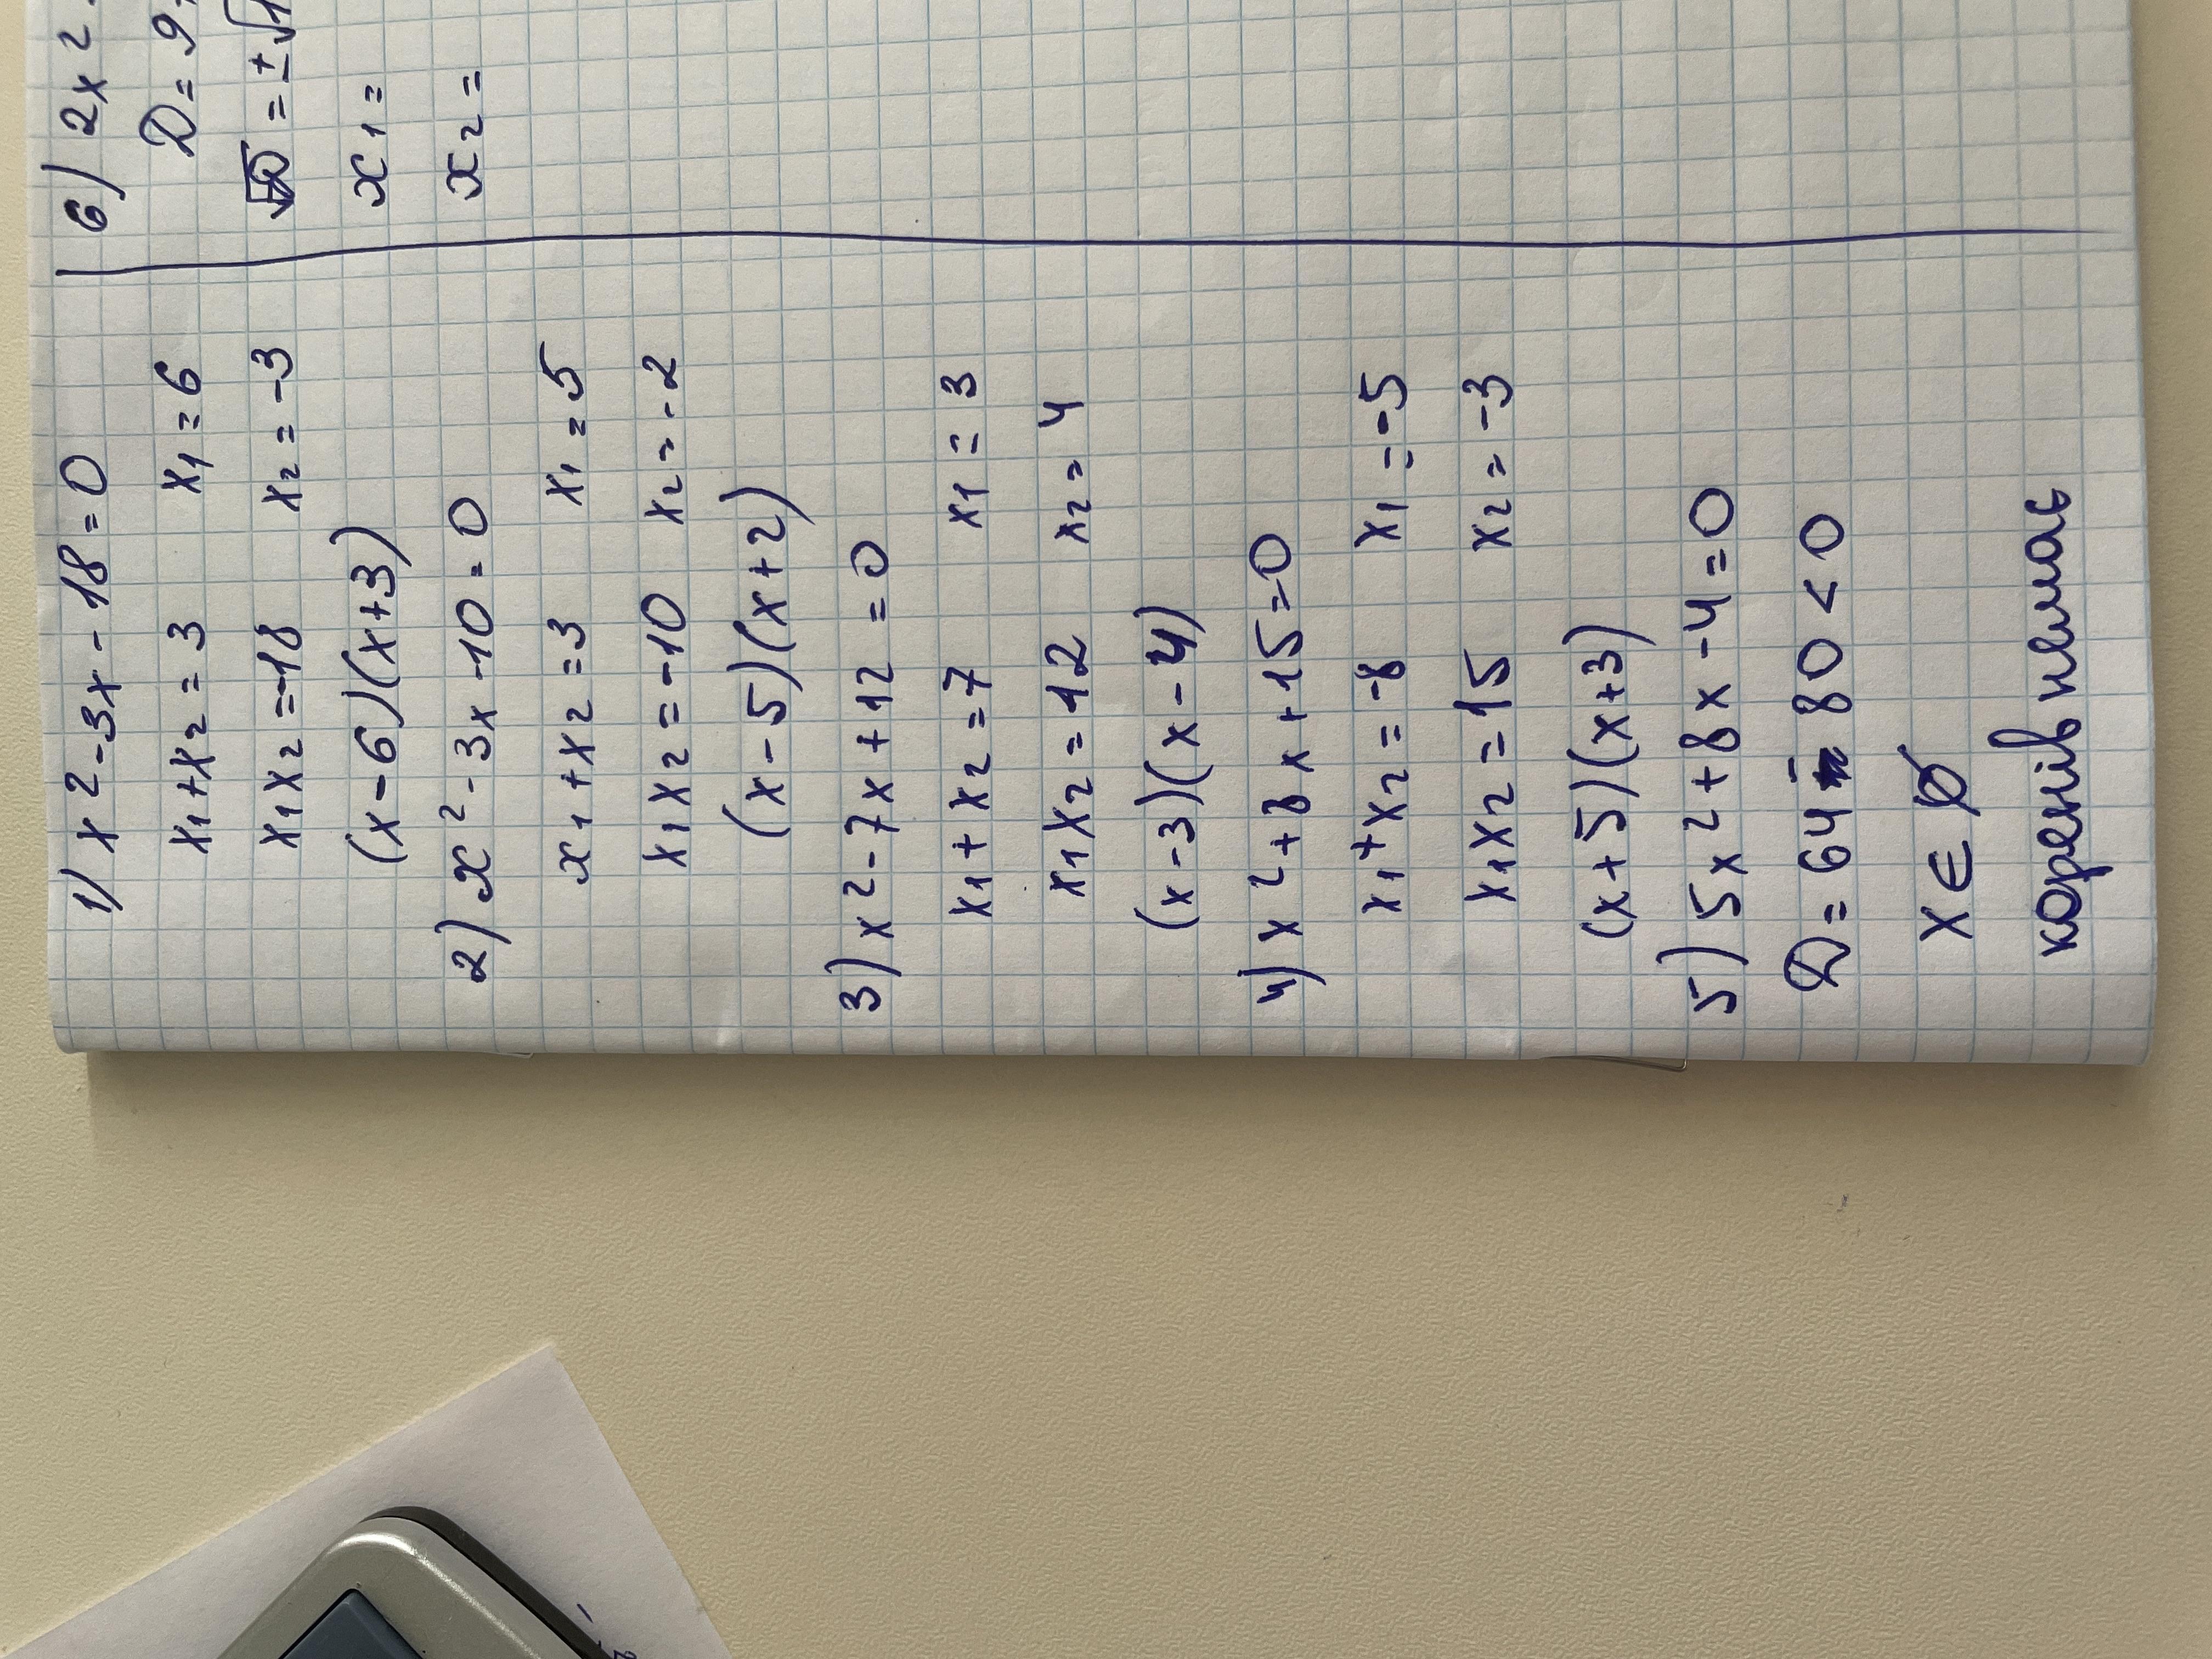 1) x² - 3x - 18 = 0
x₁ + x₂ = 3 x₁ = 6
x₁x₂ = -18 x₂ = -3
(x - 6)(x + 3)
2) x² - 3x - 10 = 0
x₁ + x₂ = 3 x₁ = 5
x₁x₂ = -10 x₂ = -2
(x - 5)(x + 2)
3) x² - 7x + 12 = 0
x₁ + x₂ = 7 x₁ = 3
x₁x₂ = 12 x₂ = 4
(x - 3)(x - 4)
4) x² + 8x + 15 = 0
x₁ + x₂ = -8 x₁ = -5
x₁x₂ = 15 x₂ = -3
(x + 5)(x + 3)
5) 5x² + 8x - 4 = 0
D = 64 - 80 < 0
x ∈ ∅
коренів немає
6) 2x²
D = 9
√D = ±√1
x₁ =
x₂ =